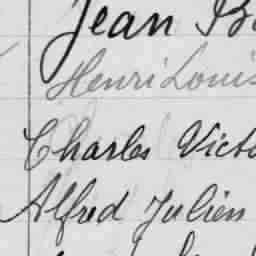 Jean B
Henri Louis
Charles Victo
Alfred Julien